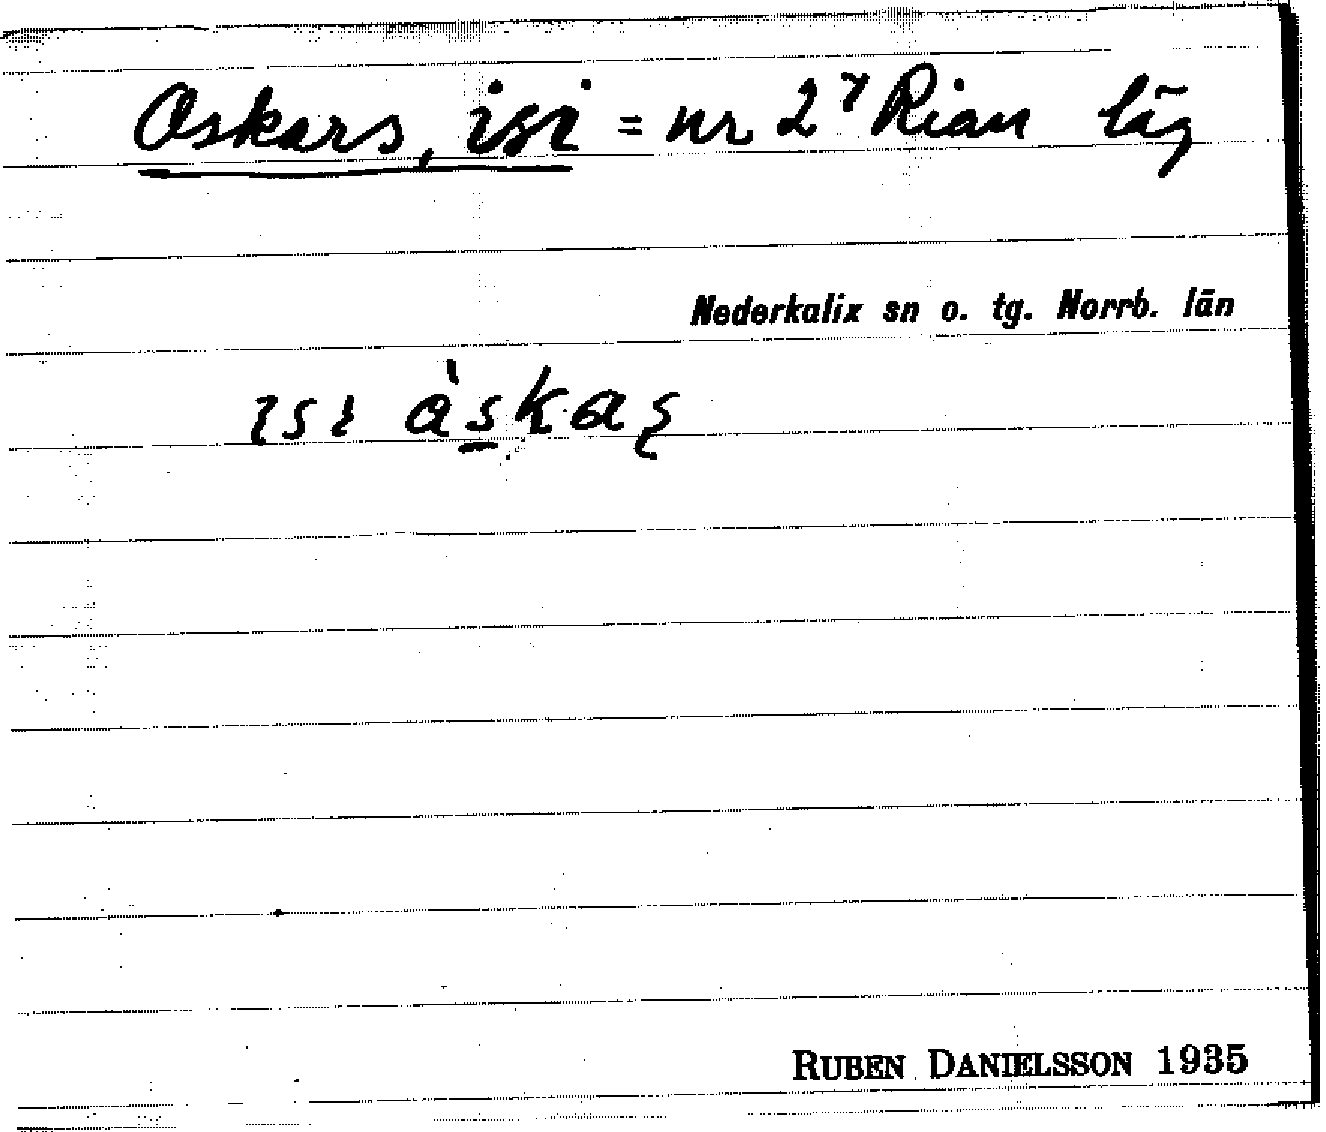 Oskars, isi = nr 2⁷ Rian låg
Nederkalix sn o. tg. Norrb. län
ısı àskaş
RUBEN DANIELSSON 1935